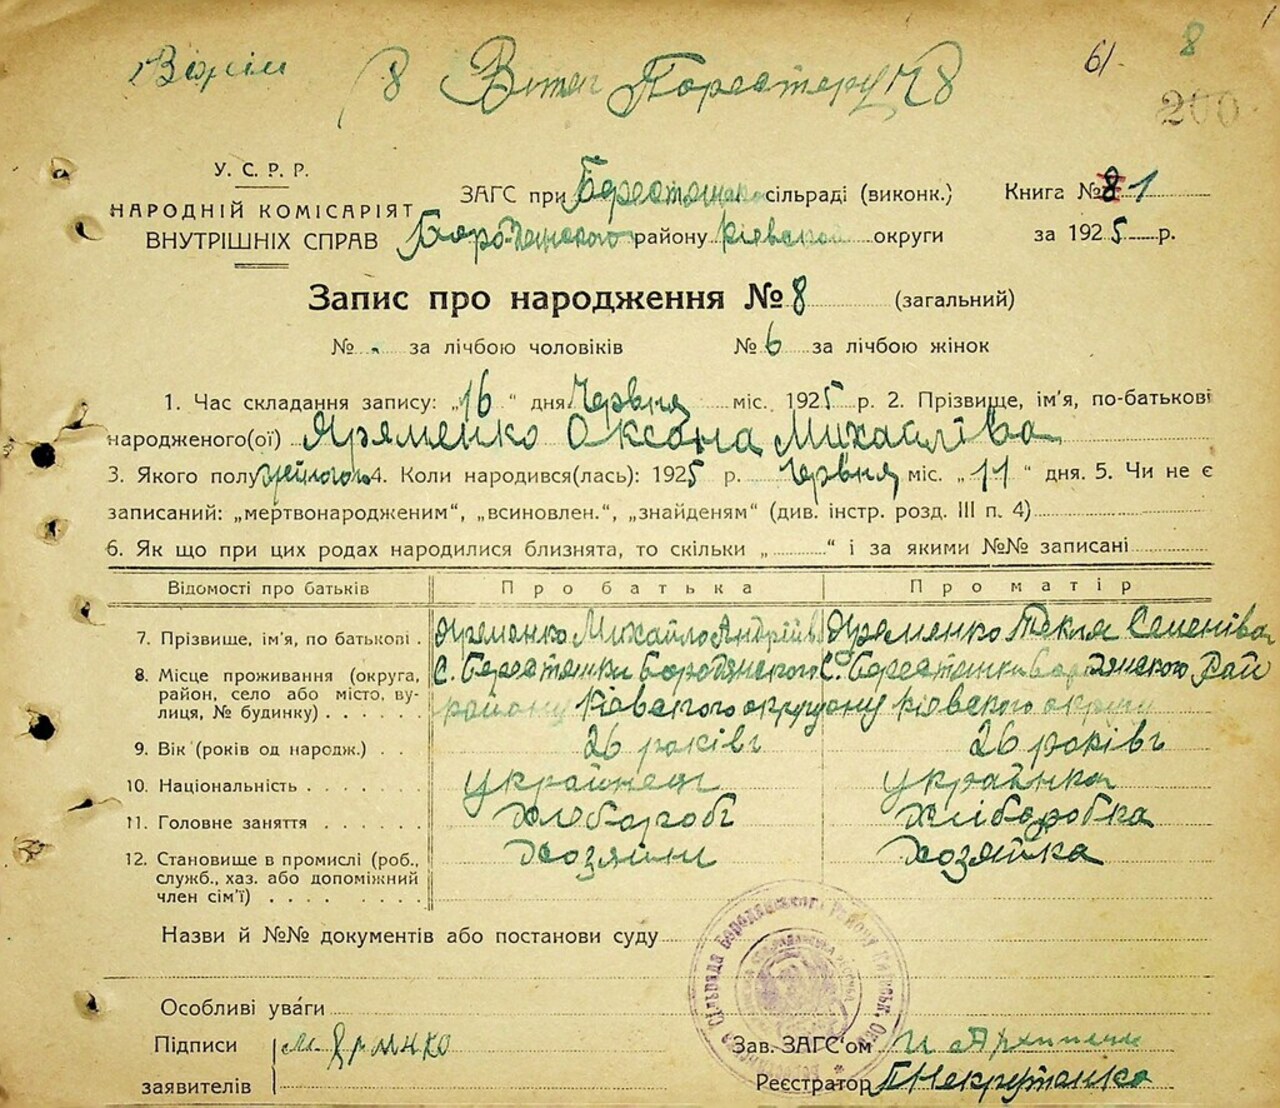 61. 8
200
У. С. Р. Р.
НАРОДНІЙ КОМІСАРІЯТ
ВНУТРІШНІХ СПРАВ
ЗАГС при сільраді (виконк.) Книга № 8 1
району округи за 1925 р.
Запис про народження № 8 (загальний)
№ - за лічбою чоловіків № 6 за лічбою жінок
1. Час складання запису: „16 “ дня Червня міс. 1925 р. 2. Прізвище, ім’я, по-батькові
народженого(ої) Яременко Оксана Михайліва
3. Якого полу 4. Коли народився(лась): 1925 р. Червня міс. „ 11 “ дня. 5. Чи не є
записаний: „мертвонародженим“, „всиновлен.“, „знайденям“ (див. інстр. розд. III п. 4)
6. Як що при цих родах народилися близнята, то скільки „ “ і за якими №№ записані
Відомості про батьків Про батька Про матір
7. Прізвище, ім’я, по батькові . Яременко Михайло Андріїв Яременко Текля Семеніва
8. Місце проживання (округа, С. Берестянки Бородянского С. Берестянки Бородянского Рай
район, село або місто, ву-
лиця, № будинку) . . . . . . району Київского округу ону Київского округу
9. Вік (років од народж.) . . 26 років 26 років
10. Національність . . . . . . . українец українка
11. Головне заняття . . . . . . Хлібороб Хліборобка
12. Становище в промислі (роб., Хозяин Хозяйка
служб., хаз. або допоміжний
член сім’ї) . . . . . . . .
Назви й №№ документів або постанови суду
Особливі уваги
Підписи
заявителів
Зав. ЗАГС‘ом
Реєстратор Некрутенко